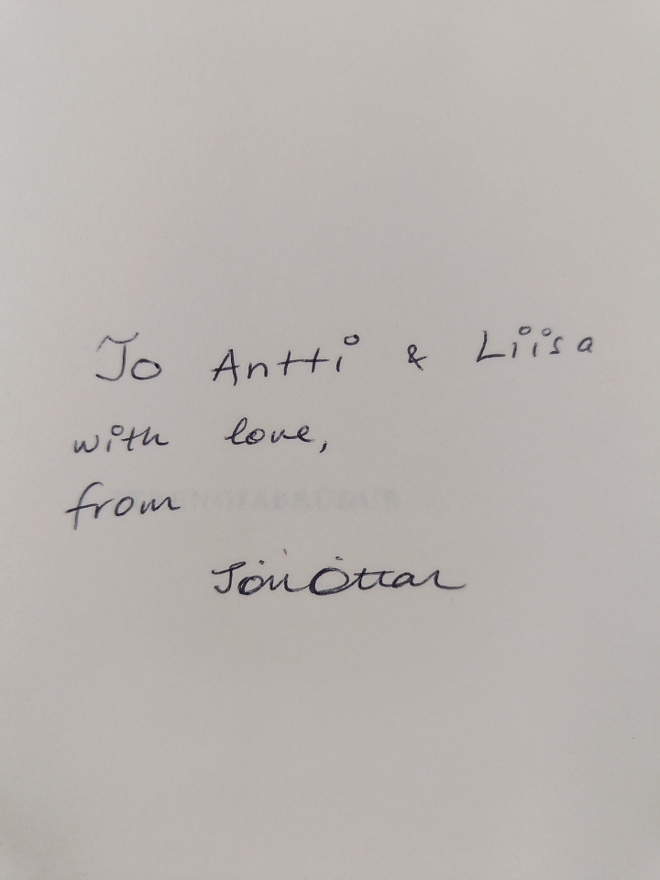 To Antti & Liisa
with love,
from
Jón Óttar